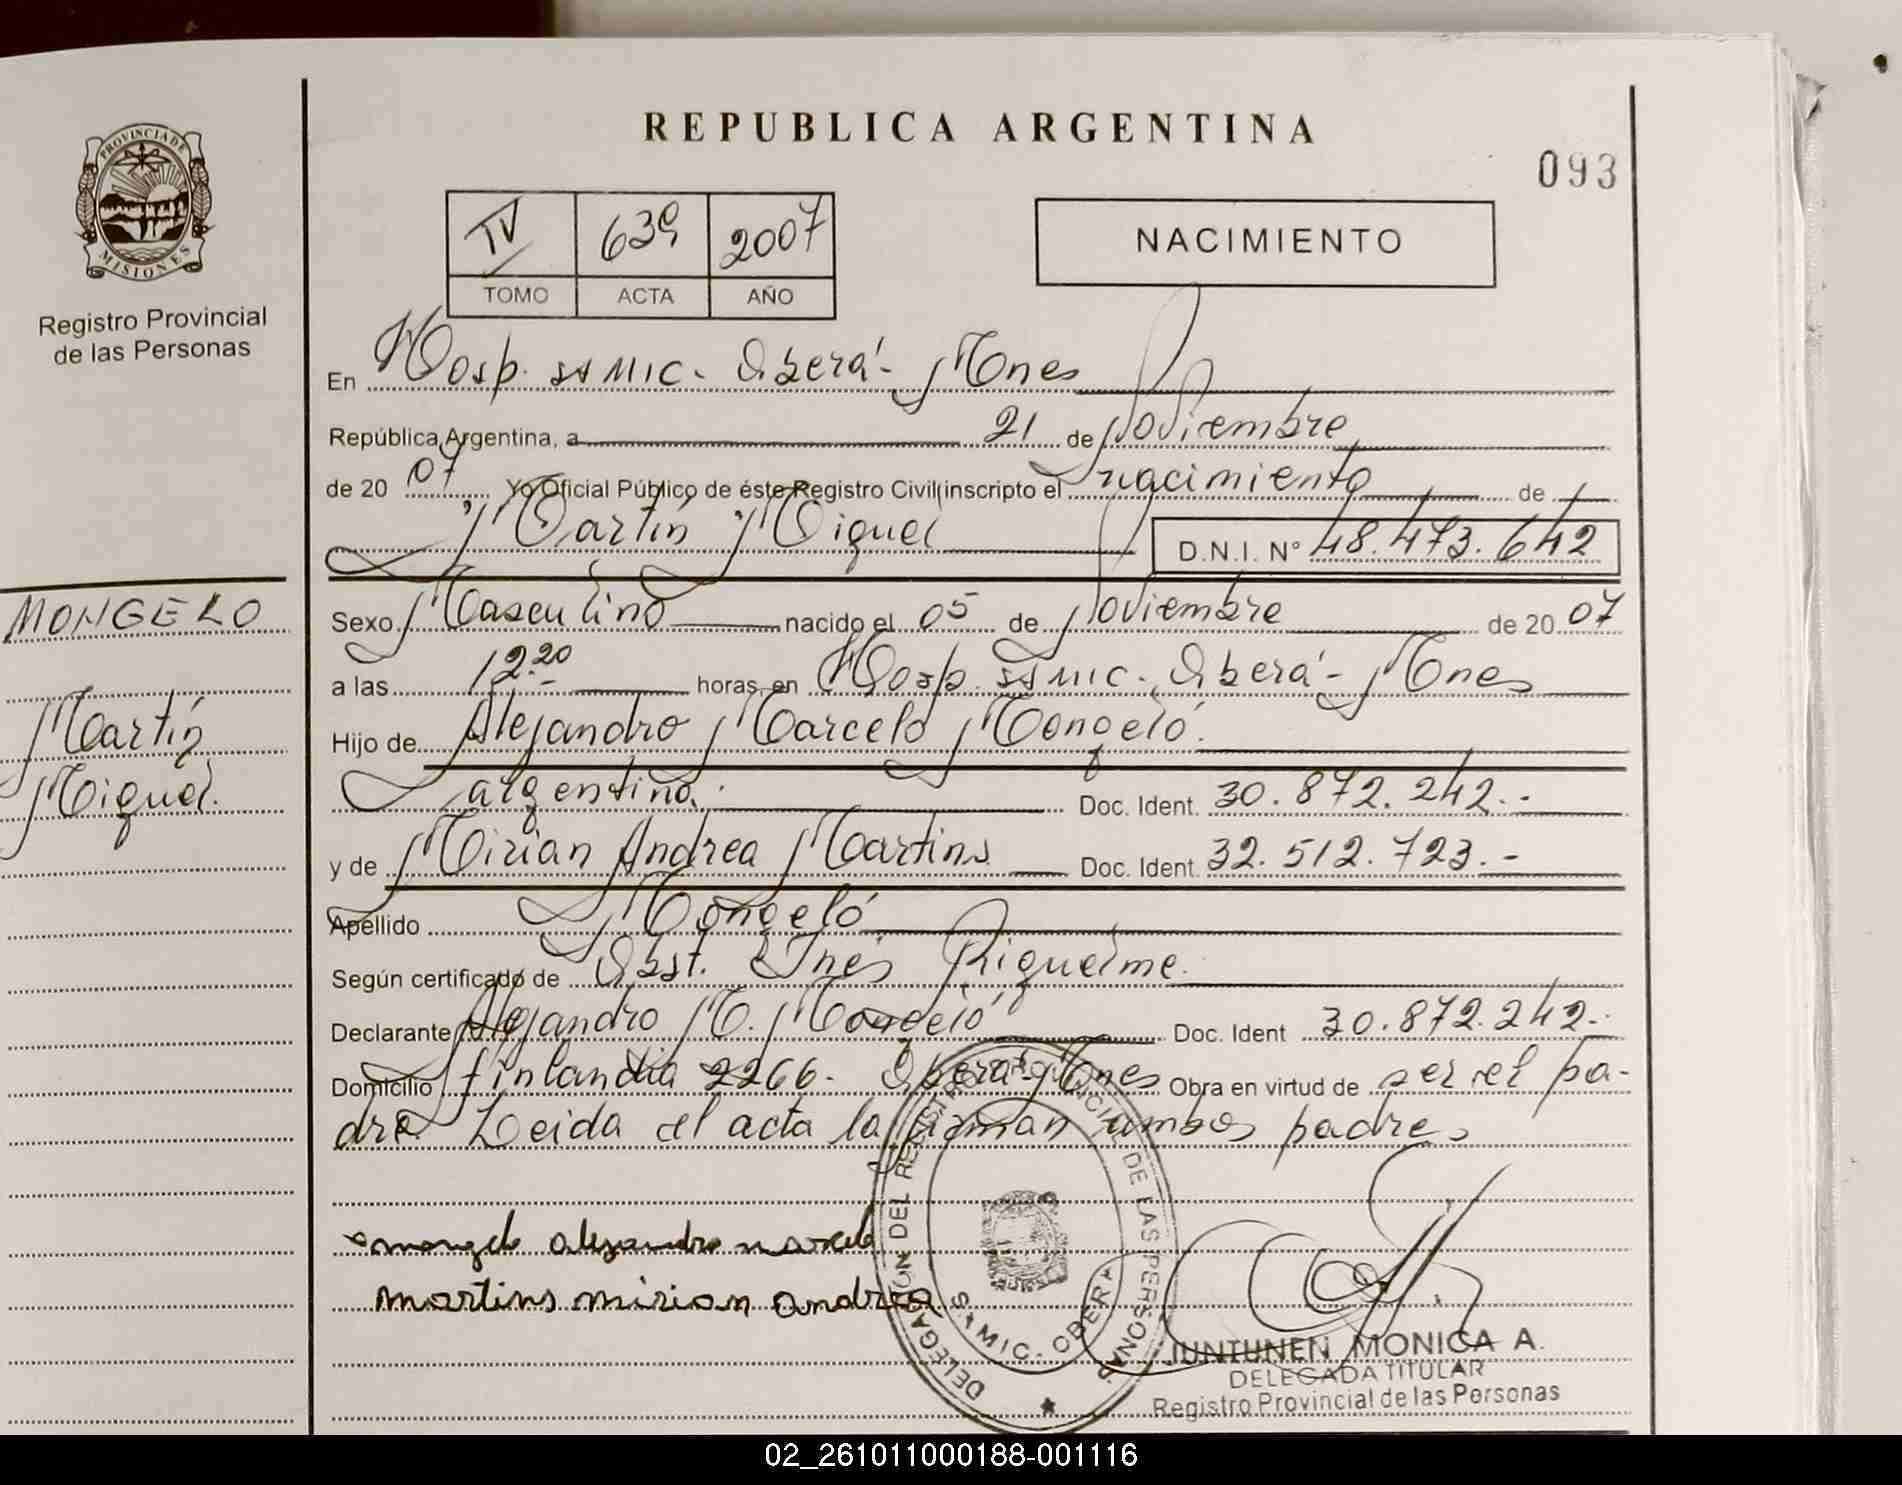 REPUBLICA ARGENTINA
093
PROVINCIA DE
MISIONES
Registro Provincial
de las Personas
IV 639 2007
TOMO ACTA AÑO
NACIMIENTO
En Hosp. SAMIC - Oberá - Mnes
República Argentina, a 21 de Noviembre
de 20 07 Yo Oficial Público de éste Registro Civil inscripto el nacimiento de
Martín Miguel D.N.I. N° 48.473.642
MONGELO
Martín
Miguel.
Sexo Masculino nacido el 05 de Noviembre de 20 07
a las 12.20 horas, en Hosp. SAMIC - Oberá - Mnes
Hijo de Alejandro Marcelo Mongeló.
argentino. Doc. Ident. 30.872.242.-
y de Mirian Andrea Martins Doc. Ident. 32.512.723.-
Apellido Mongeló
Según certificado de Obst. Inés Riquelme.
Declarante Alejandro M. Mongeló Doc. Ident 30.872.242.-
Domicilio Finlandia 2266 - Oberá - Mnes Obra en virtud de ser el pa-
dre. Leida el acta la firman ambos padres
mongelo alejandro marcelo
martins mirian andrea
DELEGACIÓN DEL REGISTRO PROVINCIAL DE LAS PERSONAS
SAMIC - OBERA
JUNTUNEN MONICA A.
DELEGADA TITULAR
Registro Provincial de las Personas
02_261011000188-001116